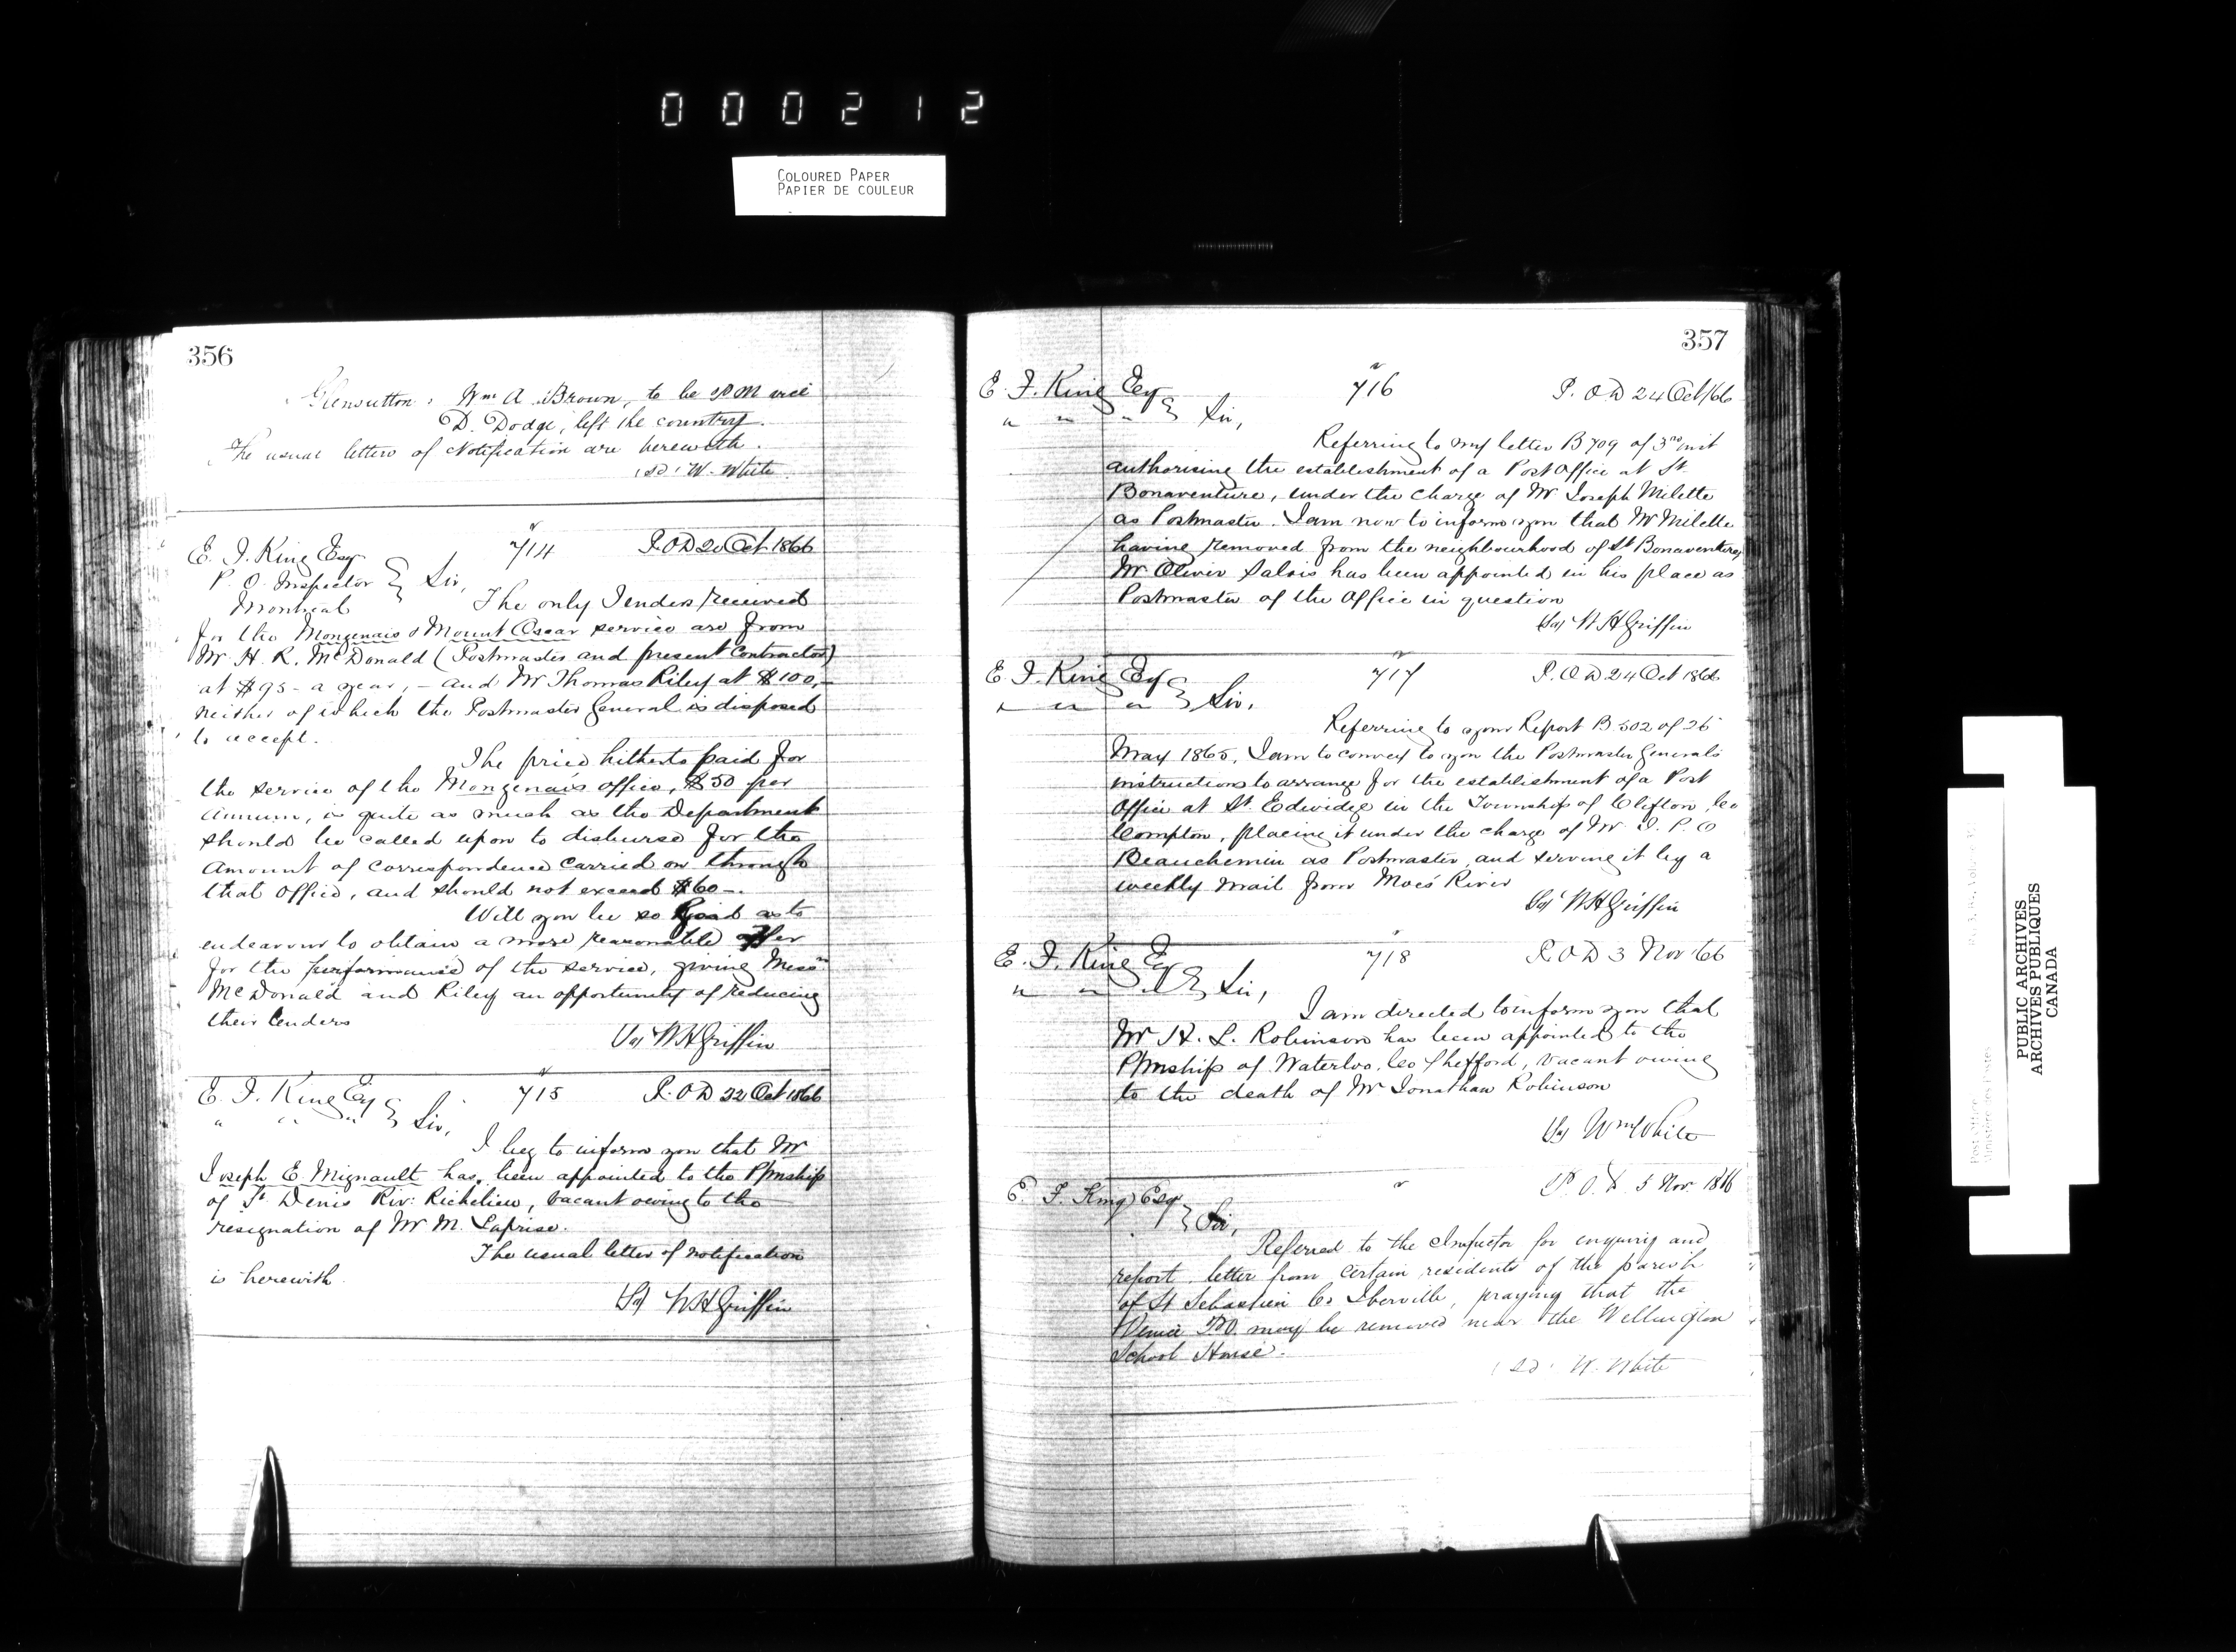 000212
COLOURED PAPER
PAPIER DE COULEUR
356
Glensutton, Wm A Brown, to be PM vice
D. Dodge, left the country.
The usual letters of Notification are herewith.
(sd) W. White
714 P.O.D 20 Oct 1866
E. F. King Esq
P. O. Inspector } Sir,
Montreal The only Tenders received
for the Mongenais & Mount Oscar service are from
Mr H. R. McDonald (Postmaster and present Contractor)
at $95 - a year, - and Mr Thomas Riley at $100,-
neither of which the Postmaster General is disposed
to accept.
The price hitherto paid for
the service of the Mongenais office, $50 per
Annum, is quite as much as the Department
should be called upon to disburse for the
amount of correspondence carried on through
that Office, and should not exceed $60-.
Will you be so good as to
endeavour to obtain a more reasonable offer
for the performance of the service, giving Messrs
McDonald and Riley an opportunity of reducing
their tenders
(Sd) W H Griffin
E. F. King Esq 715 P.O.D 22 Oct 1866
" " " } Sir,
I beg to inform you that Mr
Joseph E. Mignault has, been appointed to the P/mship
of St. Denis Riv: Richelieu, vacant owing to the
resignation of Mr M. Laprise.
The usual letter of notification
is herewith
(Sd) W H Griffin
357
E. F. King Esq 716 P. O D 24 Oct/66
" " " } Sir,
Referring to my letter B 709 of 3rd inst
authorising the establishment of a Post Office at St
Bonaventure, under the charge of Mr Joseph Milette
as Postmaster. I am now to inform you that Mr Milette
having removed from the neighbourhood of St Bonaventure,
Mr Olivier Salois has been appointed in his place as
Postmaster of the Office in question
(Sd) W H Griffin
E. F. King Esq 717 P. O D 24 Oct 1866
" " " } Sir,
Referring to your Report B 502 of 26
May 1865, I am to convey to you the Postmaster General's
instructions to arrange for the establishment of a Post
Office at St. Edwidge in the Township of Clifton, Co
Compton, placing it under the charge of Mr
Beauchemin as Postmaster, and serving it by a
weekly mail from Moe's River
(Sd) W H Griffin
E. F. King Esq 718 P.O D 3 Nov/66
" " " } Sir,
I am directed to inform you that
Mr H. L. Robinson has been appointed to the
P/mship of Waterloo, Co Shefford, vacant owing
to the death of Mr Jonathan Robinson
(Sd) Wm White
P. O. D. 5 Nov. 1866
E. F. King Esq
} Sir,
Referred to the Inspector for enquiry and
report, letter from certain residents of the parish
of St Sebastien Co Iberville, praying that the
Venice P.O. may be removed near the Wellington
School House.
(sd) W. White
PUBLIC ARCHIVES
ARCHIVES PUBLIQUES
CANADA